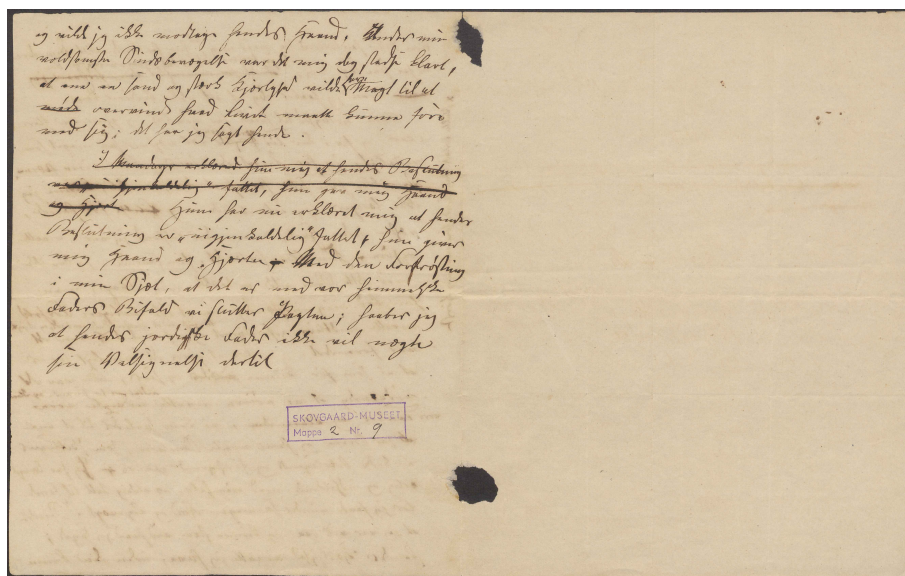 og vilde jeg ikke modtage hendes Haand. Under min
voldsomste Sindsbevægelse var det mig dog stedse klart,
at ene en sand og stærk Kjærlighed vilde have Magt til at
møde overvinde hvad Livet maatte kunne føre
med sig; det har jeg sagt hende.
I Mandags erklærede hun mig at hendes Beslutning
var "uigjenkaldelig" fattet, hun gav mig Haand
og Hjert Hun har nu erklæret mig at hendes
Beslutning er "uigjenkaldelig" fattet, hun giver
mig Haand og Hjerte. Med den Fortrøstning
i min Sjæl, at det er med vor himmelske
Faders Bifald vi slutter Pagten; haaber jeg
at hendes jordiske Fader ikke vil nægte
sin Velsignelse dertil
SKOVGAARD-MUSEET
Mappe 2 Nr. 9